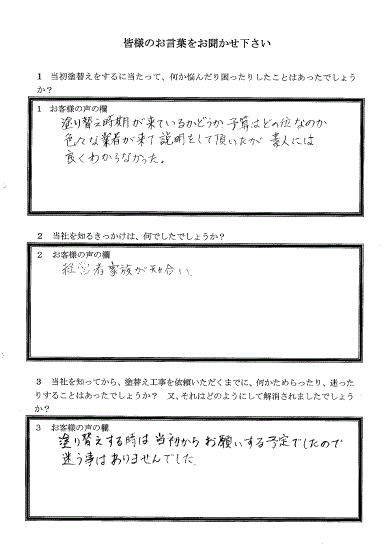 皆様のお言葉をお聞かせ下さい
1 当初塗替えをするに当たって、何か悩んだり困ったりしたことはあったでしょう
か?
1 お客様の声の欄
塗り替え時期が来ているかどうか、予算はどの位なのか
色々な業者が来て説明をして頂いたが素人には
良くわからなかった。
2 当社を知るきっかけは、何でしたでしょうか?
2 お客様の声の欄
経営者家族が知合い、
3 当社を知ってから、塗替え工事を依頼いただくまでに、何かためらったり、迷った
りすることはあったでしょうか? 又、それはどのようにして解消されましたでしょう
か?
3 お客様の声の欄
塗り替えする時は当初からお願いする予定でしたので
迷う事はありませんでした。